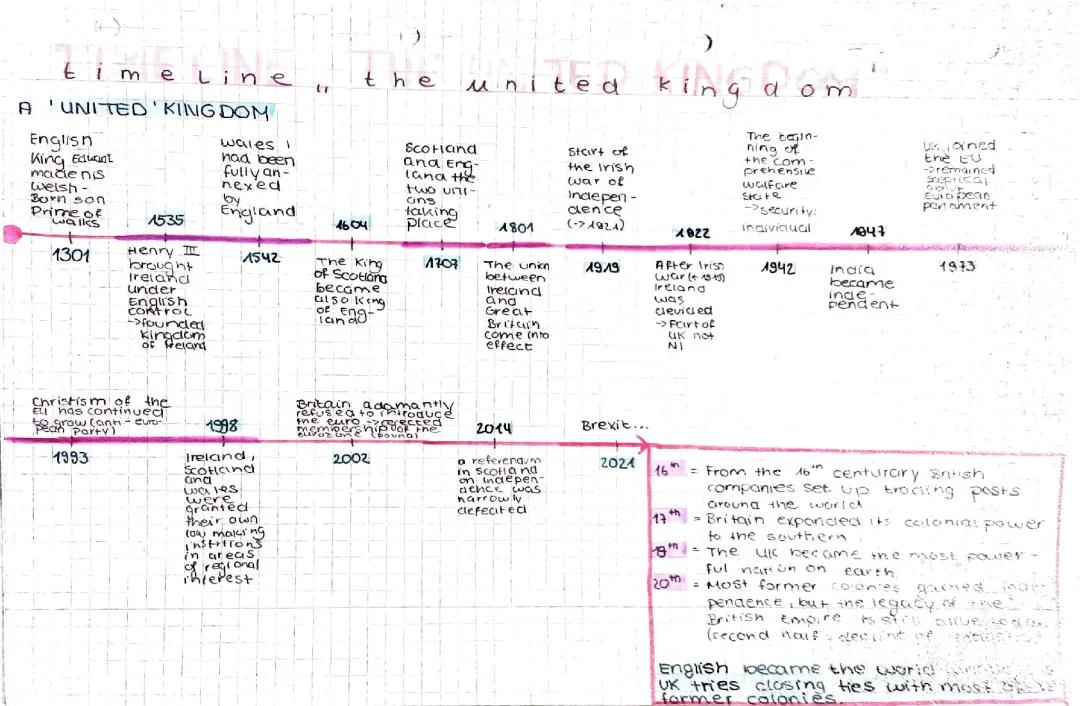 timeline „ the united kingdom '
A 'UNITED' KINGDOM
English
King Eduard
made his
Welsh -
Born son
Prime of
walks
1301
1535
Henry III
brought
Ireland
under
English
control
->founded
Kingdom
of Ireland
Wales
had been
fully an-
nexed
by
England
1542
1604
The King
of Scotland
became
also King
of Eng-
land
Scotland
and Eng-
land the
two uni-
ons
taking
place
1707
1801
The union
between
Ireland
and
Great
Britain
come into
effect
Start of
the Irish
War of
Indepen-
dence
(->1921)
1919
1922
After Irish
War
Ireland
was
devided
-> Part of
UK not
NI
The begin-
ning of
the com-
prehensive
walfare
state
->security:
individual
1942
1947
India
became
inde-
pendent
UK joined
the EU
->remained
sceptical
about
European
parlament
1973
Christism of the
EU has continued
to grow (ann-euro-
pean party)
1993
1998
Ireland,
Scotland
and
Wales
were
granted
their own
law making
institions
in areas
of regional
interest
Britain adamantly
refused to introduce
the euro -> rejected
membership of the
eurozone (pound)
2002
2014
a referendum
in scotland
on indepen-
dence was
narrowly
defeated
Brexit...
2021
16th = From the 16th centurary British
companies set up trading posts
around the world
17th = Britain expanded its colonial power
to the southern
19th = The UK became the most power-
ful nation on earth
20th = Most former colonies gained inde-
pendence, but the legacy of the
British Empire is still alive
(second half: decline of
English became the world
UK tries closing ties with most of
former colonies.